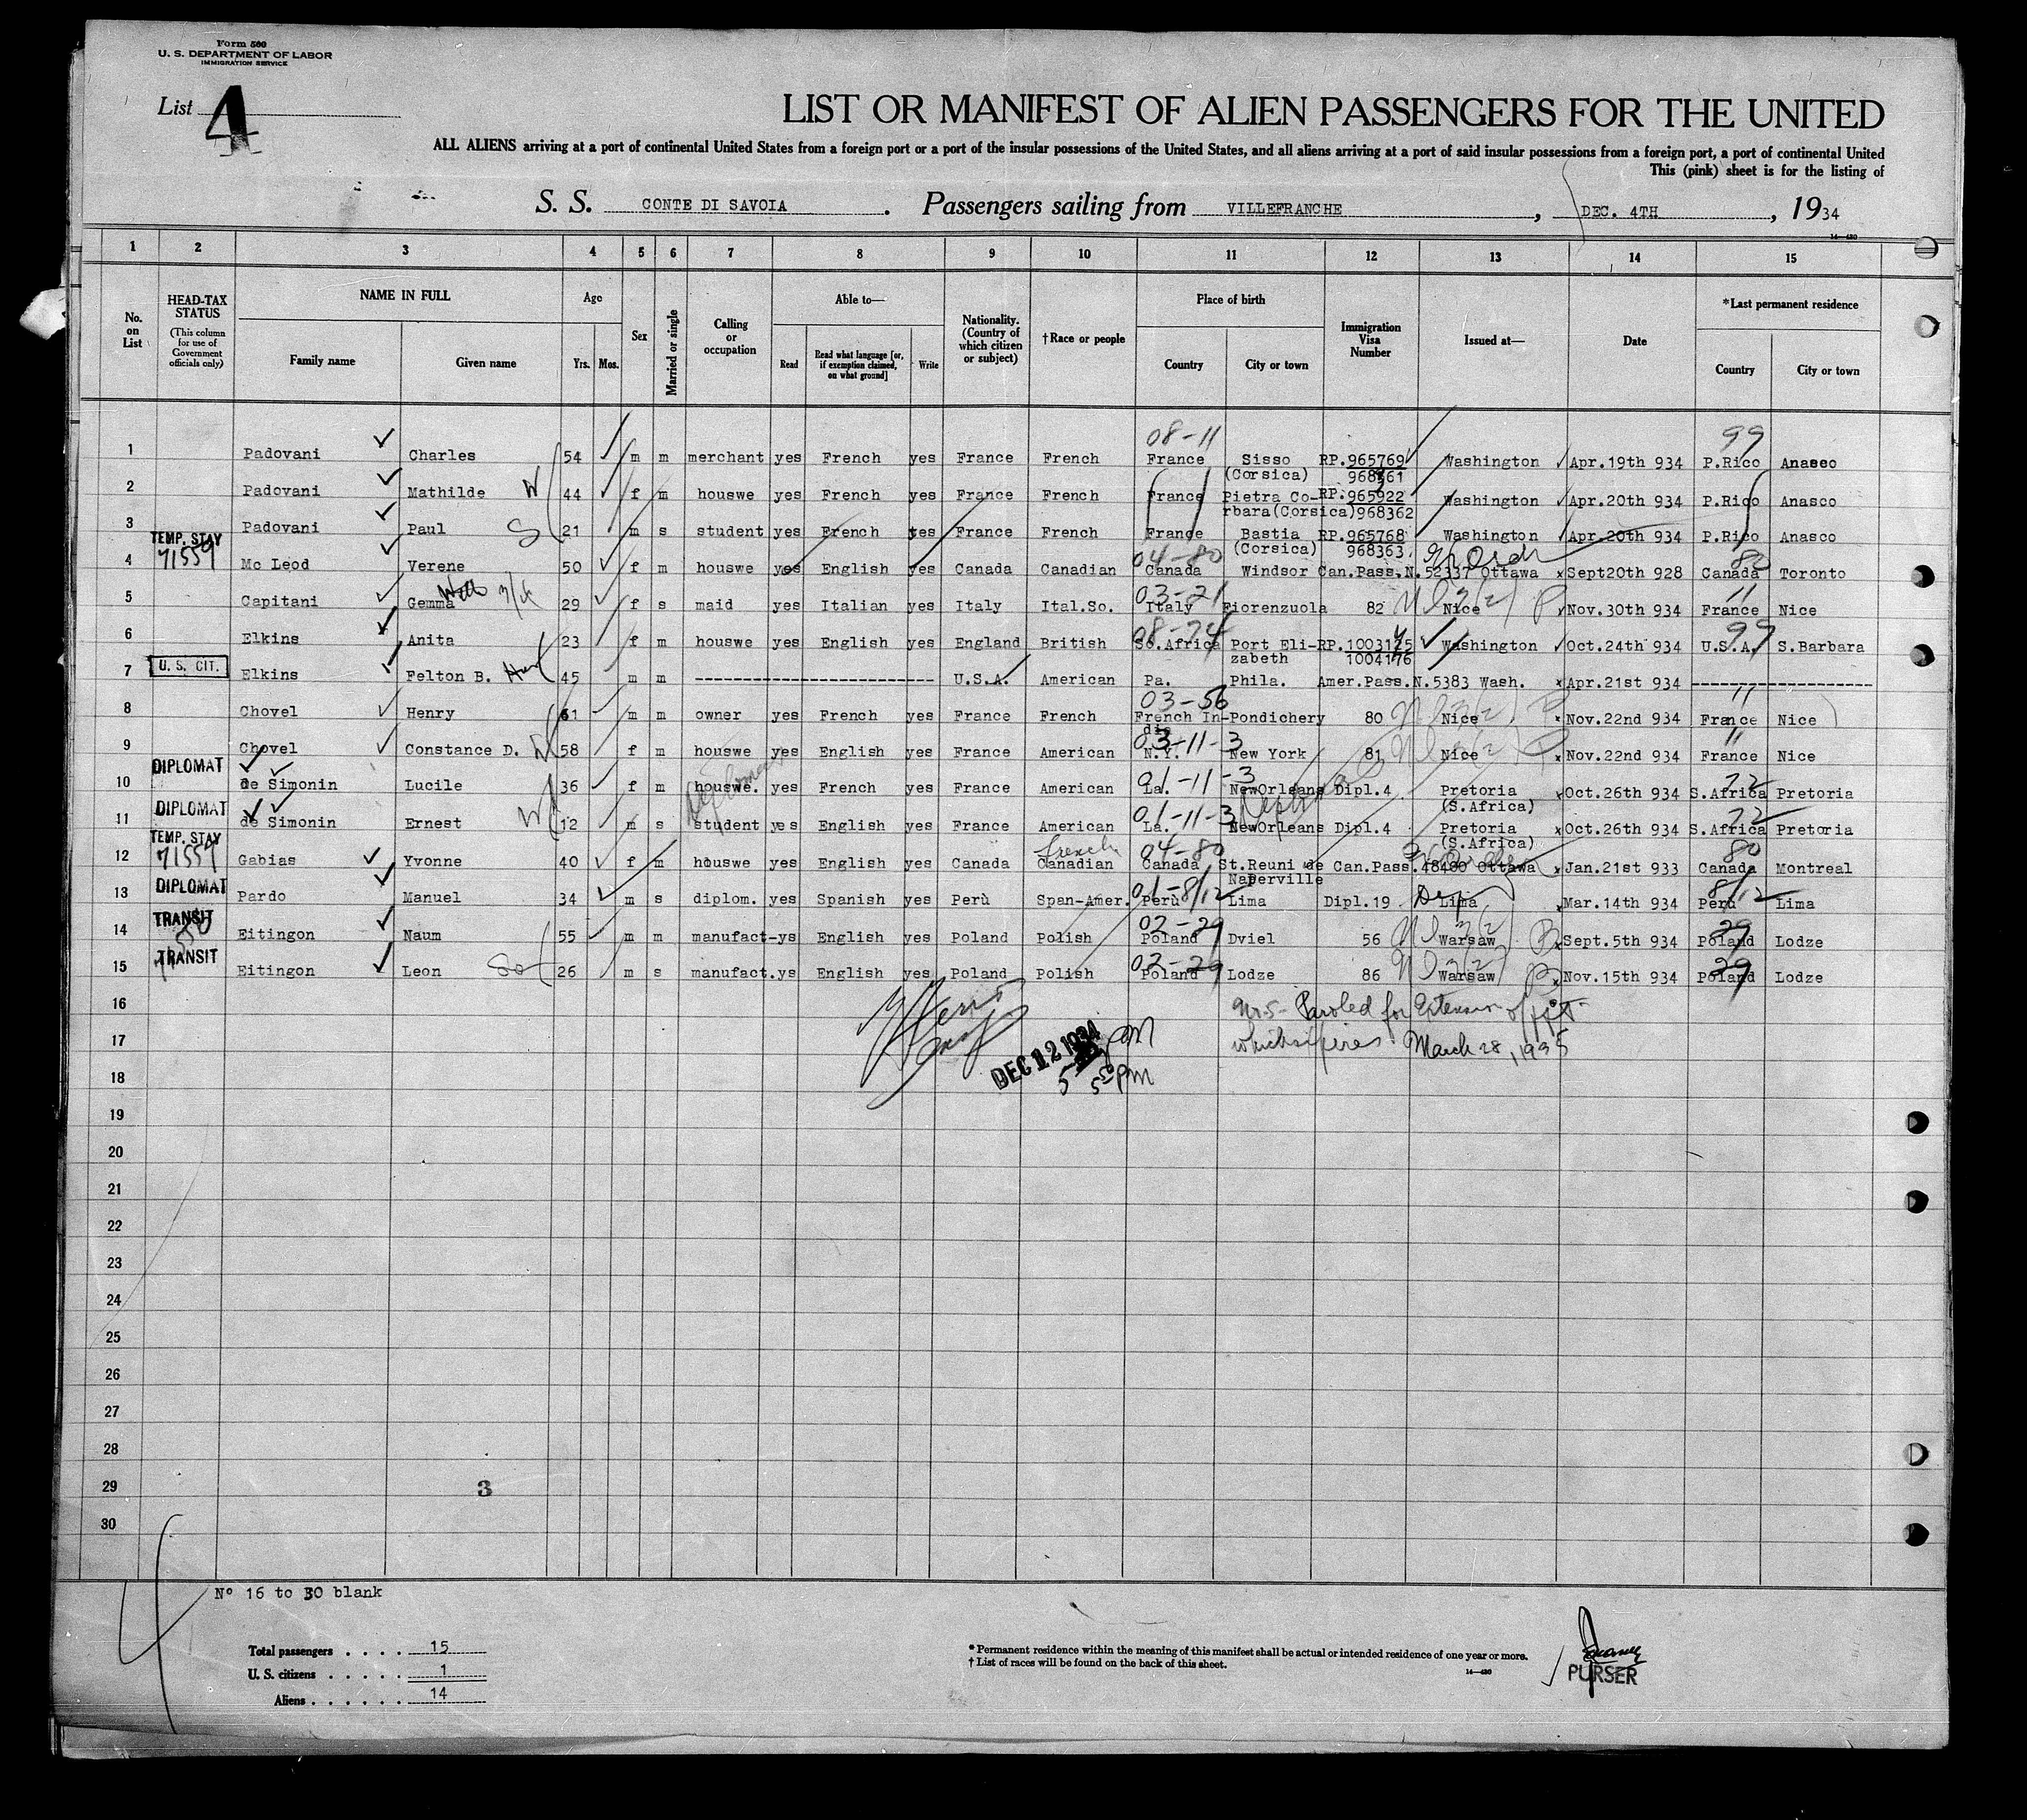 Form 500
U. S. DEPARTMENT OF LABOR
IMMIGRATION SERVICE
List 4
LIST OR MANIFEST OF ALIEN PASSENGERS FOR THE UNITED
ALL ALIENS arriving at a port of continental United States from a foreign port or a port of the insular possessions of the United States, and all aliens arriving at a port of said insular possessions from a foreign port, a port of continental United
This (pink) sheet is for the listing of
S. S. CONTE DI SAVOIA. Passengers sailing from VILLEFRANCHE, DEC. 4TH, 1934
14—430
1 2 3 4 5 6 7 8 9 10 11 12 13 14 15
No. on List
HEAD-TAX STATUS (This column for use of Government officials only)
NAME IN FULL
Family name Given name
Age
Yrs. Mos.
Sex
Married or single
Calling or occupation
Able to—
Read
Read what language [or, if exemption claimed, on what ground]
Write
Nationality. (Country of which citizen or subject)
†Race or people
Place of birth
Country City or town
Immigration Visa Number
Issued at—
Date
*Last permanent residence
Country City or town
08-11 99
1 Padovani Charles 54 m m merchant yes French yes France French France Sisso RP.965769 Washington Apr.19th 934 P.Rico Anasco
(Corsica) 968361
2 Padovani Mathilde W 44 f m houswe yes French yes France French France Pietra Co- RP.965922 Washington Apr.20th 934 P.Rico Anasco
rbara(Corsica) 968362
3 Padovani Paul S 21 m s student yes French yes France French France Bastia RP.965768 Washington Apr.20th 934 P.Rico Anasco
TEMP. STAY (Corsica) 968363
71559 04-80 80
4 Mc Leod Verene 50 f m houswe yes English yes Canada Canadian Canada Windsor Can.Pass.N.52337 Ottawa Sept20th 928 Canada Toronto
03-21 11
5 Capitani Gemma 29 f s maid yes Italian yes Italy Ital.So. Italy Fiorenzuola 82 Nice Nov.30th 934 France Nice
08-74 99
6 Elkins Anita 23 f m houswe yes English yes England British So.Africa Port Eli- RP.1003125 Washington Oct.24th 934 U.S.A. S.Barbara
U. S. CIT. zabeth 1004176
7 Elkins Felton B. 45 m m ---------- U.S.A. American Pa. Phila. Amer.Pass.N.5383 Wash. Apr.21st 934 ----------
03-56 11
8 Chovel Henry 61 m m owner yes French yes France French French In- Pondichery 80 Nice Nov.22nd 934 France Nice
dia
03-11-3 11
9 Chovel Constance D. W 58 f m houswe yes English yes France American N.Y. New York 81 Nice Nov.22nd 934 France Nice
DIPLOMAT
01-11-3 72
10 de Simonin Lucile 36 f m houswe. yes French yes France American La. NewOrleans Dipl.4 Pretoria Oct.26th 934 S.Africa Pretoria
DIPLOMAT (S.Africa)
01-11-3 72
11 de Simonin Ernest 12 m s student yes English yes France American La. NewOrleans Dipl.4 Pretoria Oct.26th 934 S.Africa Pretoria
TEMP. STAY (S.Africa)
71559 French 04-80 80
12 Gabias Yvonne 40 f m houswe yes English yes Canada Canadian Canada St.Reuni de Can.Pass.48480 Ottawa Jan.21st 933 Canada Montreal
DIPLOMAT Naperville
01-8/12 8/12
13 Pardo Manuel 34 m s diplom. yes Spanish yes Perù Span-Amer. Perù Lima Dipl.19 Lima Mar.14th 934 Perù Lima
TRANSIT
02-29 29
14 Eitingon Naum 55 m m manufact-ys English yes Poland Polish Poland Dviel 56 Warsaw Sept.5th 934 Poland Lodze
TRANSIT
02-29 29
15 Eitingon Leon So 26 m s manufact.ys English yes Poland Polish Poland Lodze 86 Warsaw Nov.15th 934 Poland Lodze
16 No.5- Paroled for Extension of
17 March 28, 1935
DEC 12 1934
18
19
20
21
22
23
24
25
26
27
28
29 3
30
Nº 16 to 30 blank
Total passengers . . . . 15
U. S. citizens . . . . . 1
Aliens . . . . . . 14
* Permanent residence within the meaning of this manifest shall be actual or intended residence of one year or more.
† List of races will be found on the back of this sheet.
14—430
PURSER